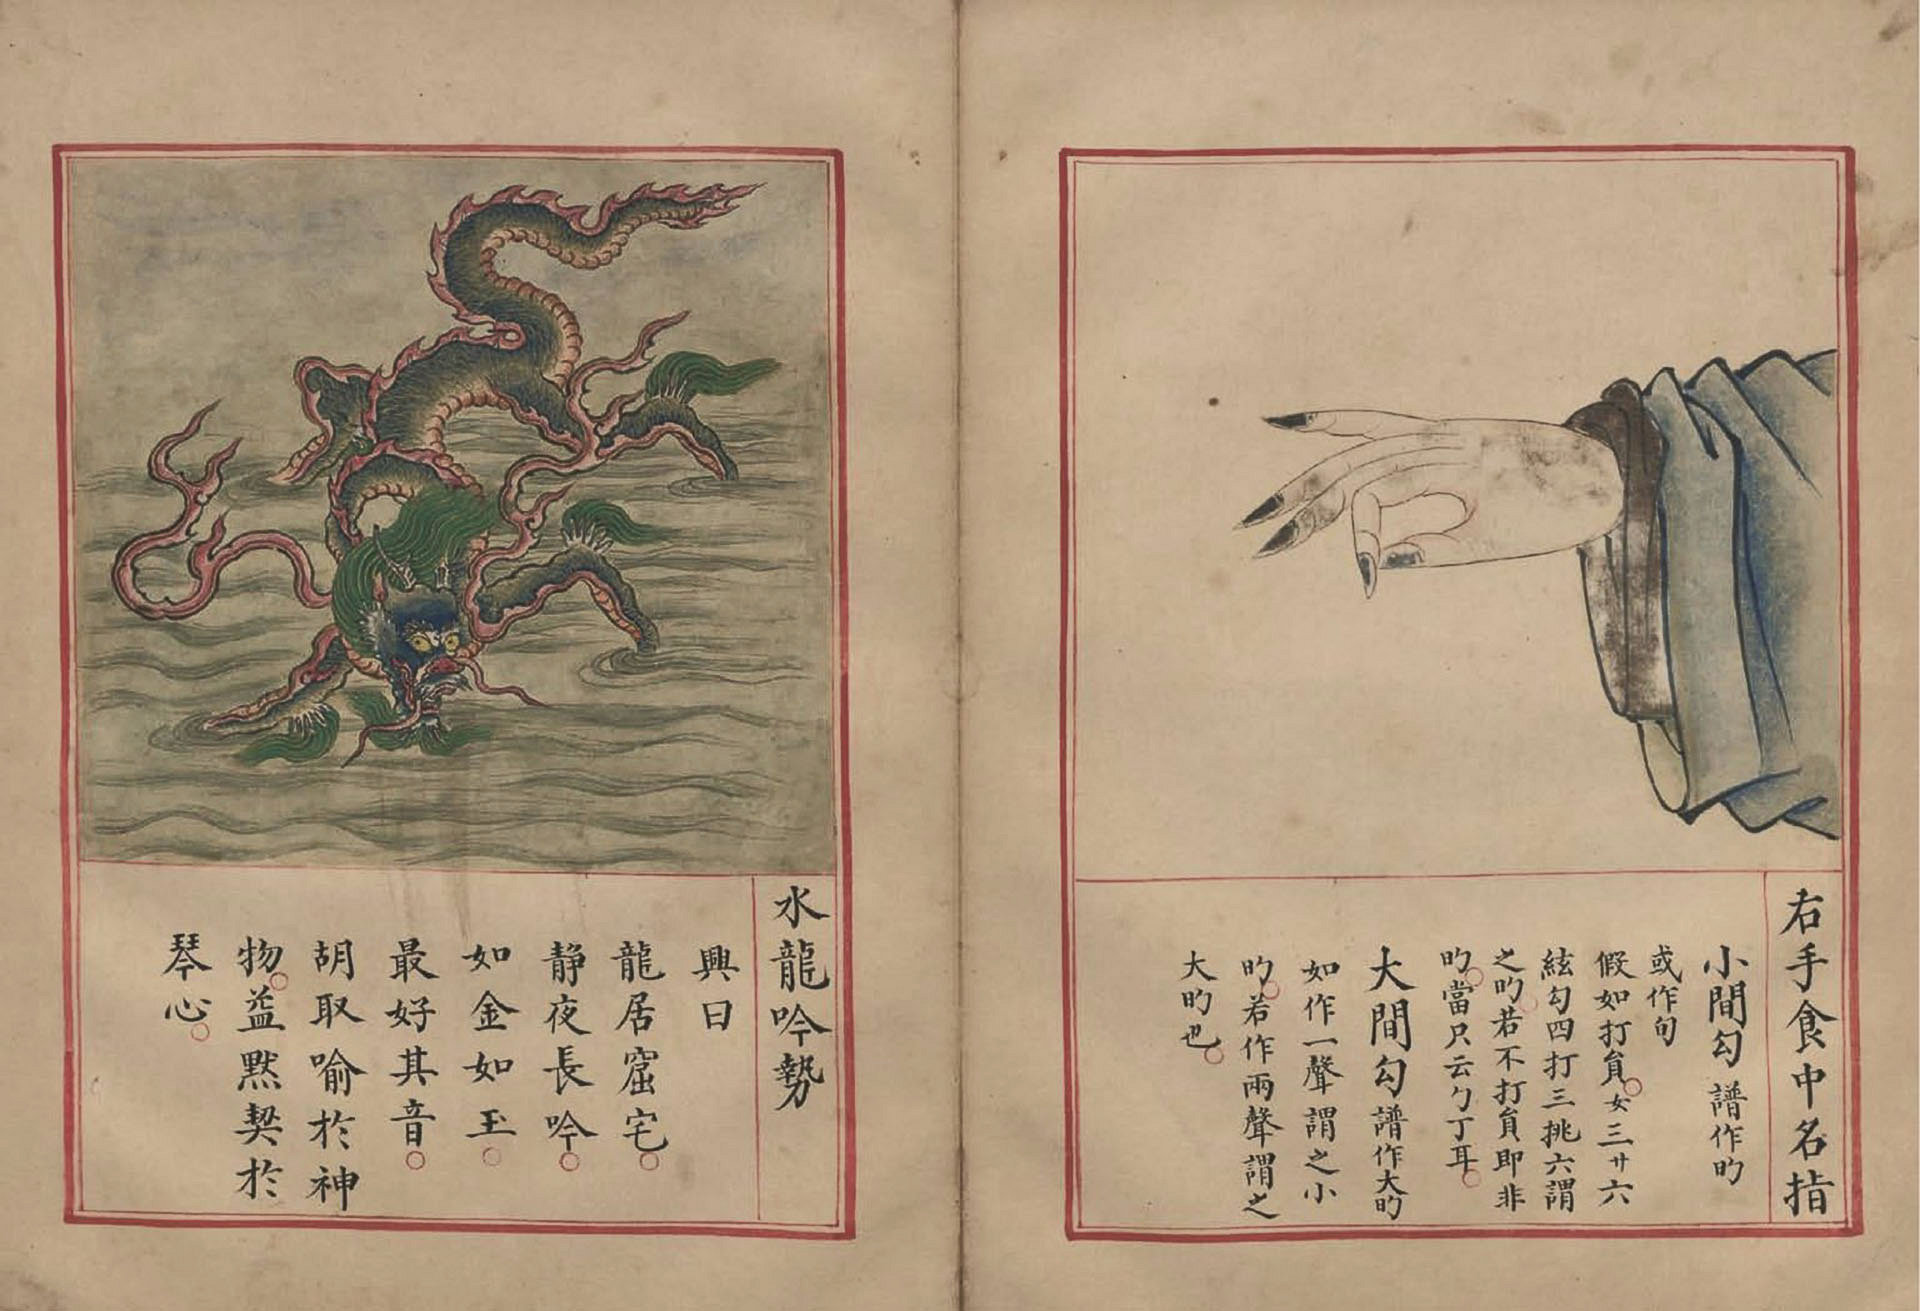 右手食中名指
小間勾 譜作旳
或作句
假如打負女三廿六
絃勾四打三挑六謂
之旳若不打負即非
旳當只云勹丁耳
大間勾譜作大旳
如作一聲謂之小
旳若作兩聲謂之
大旳也
水龍吟勢
興曰
龍居窟宅
静夜長吟
如金如玉
最好其音
胡取喻於神
物益默契於
琴心